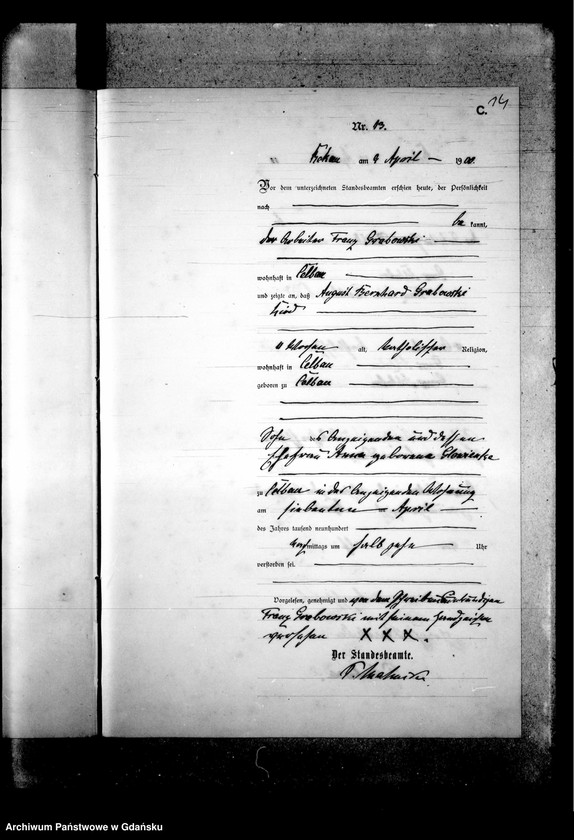 C. 14
Nr. 13.
am 9 April 1900.
Vor dem unterzeichneten Standesbeamten erschien heute, der Persönlichkeit
nach
be kannt,
der Arbeiter Franz Grabowski
wohnhaft in Ceißau
und zeigte an, daß August Bernhard Grabowski
Kind
11 Wochen alt, katholischer Religion,
wohnhaft in
geboren zu
Sohn des Anzeigenden und dessen
Ehefrau Anna geborene
zu in des Anzeigenden Wohnung
am siebenten April
des Jahres tausend neunhundert
mittags um halb zehn Uhr
verstorben sei.
Vorgelesen, genehmigt und von dem Schreibens unkundigen
Franz Grabowski mit seinem Handzeichen
versehen XXX.
Der Standesbeamte.
Archiwum Państwowe w Gdańsku